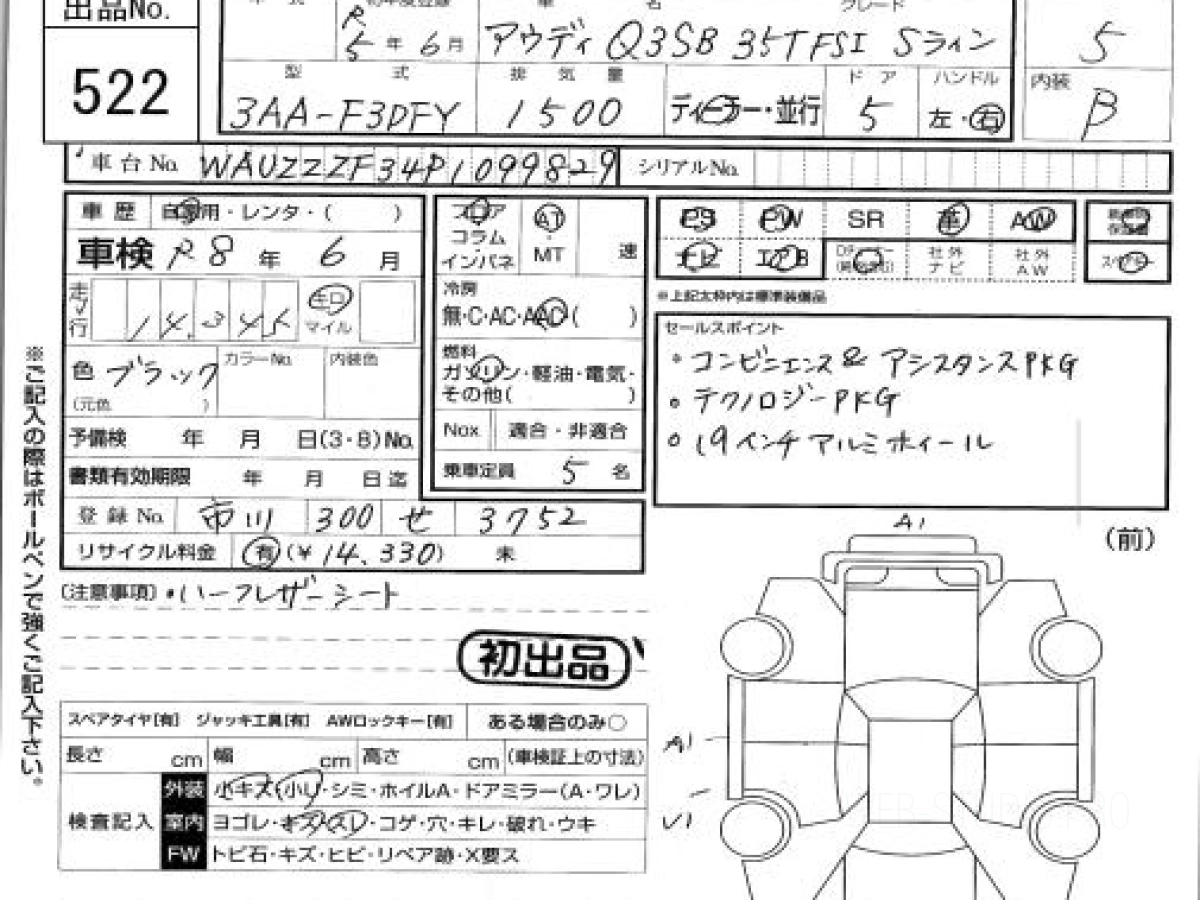 出品No.
522
初年度登録 車 名 グレード
R5年6月 アウディ Q3SB 35TFSI Sライン 5
型 式 排 気 量 ディーラー・並行 ドア ハンドル 内装
3AA-F3DFY 1500 5 左・右 B
車台No. WAUZZZF34P1099829 シリアルNo.
車歴 自家用・レンタ・( )
車検 R8年 6月
走行 14,345 キロ マイル
色 ブラック カラーNo. 内装色
(元色 )
予備検 年 月 日(3・8)No.
書類有効期限 年 月 日迄
登録No. 市川 300 せ 3752
リサイクル料金 有(¥14,330) 未
フロア コラム インパネ
AT・MT 速
冷房
無・C・AC・AAC( )
燃料
ガソリン・軽油・電気・
その他( )
Nox 適合・非適合
乗車定員 5 名
PS PW SR 革 AW
ナビ エアB 社外ナビ 社外AW
スペアキー
※上記太枠内は標準装備品
セールスポイント
・コンビニエンス& アシスタンスPKG
・テクノロジーPKG
・19インチアルミホイール
(注意事項)・ハーフレザーシート
初出品
※ご記入の際はボールペンで強くご記入下さい。
スペアタイヤ[有] ジャッキ工具[有] AWロックキー[有] ある場合のみ○
長さ cm 幅 cm 高さ cm (車検証上の寸法)
検査記入
外装 小キズ・小U・シミ・ホイルA・ドアミラー(A・ワレ)
室内 ヨゴレ・キズ・スレ・コゲ・穴・キレ・破れ・ウキ
FW トビ石・キズ・ヒビ・リペア跡・X要ス
A1
(前)
A1
U1